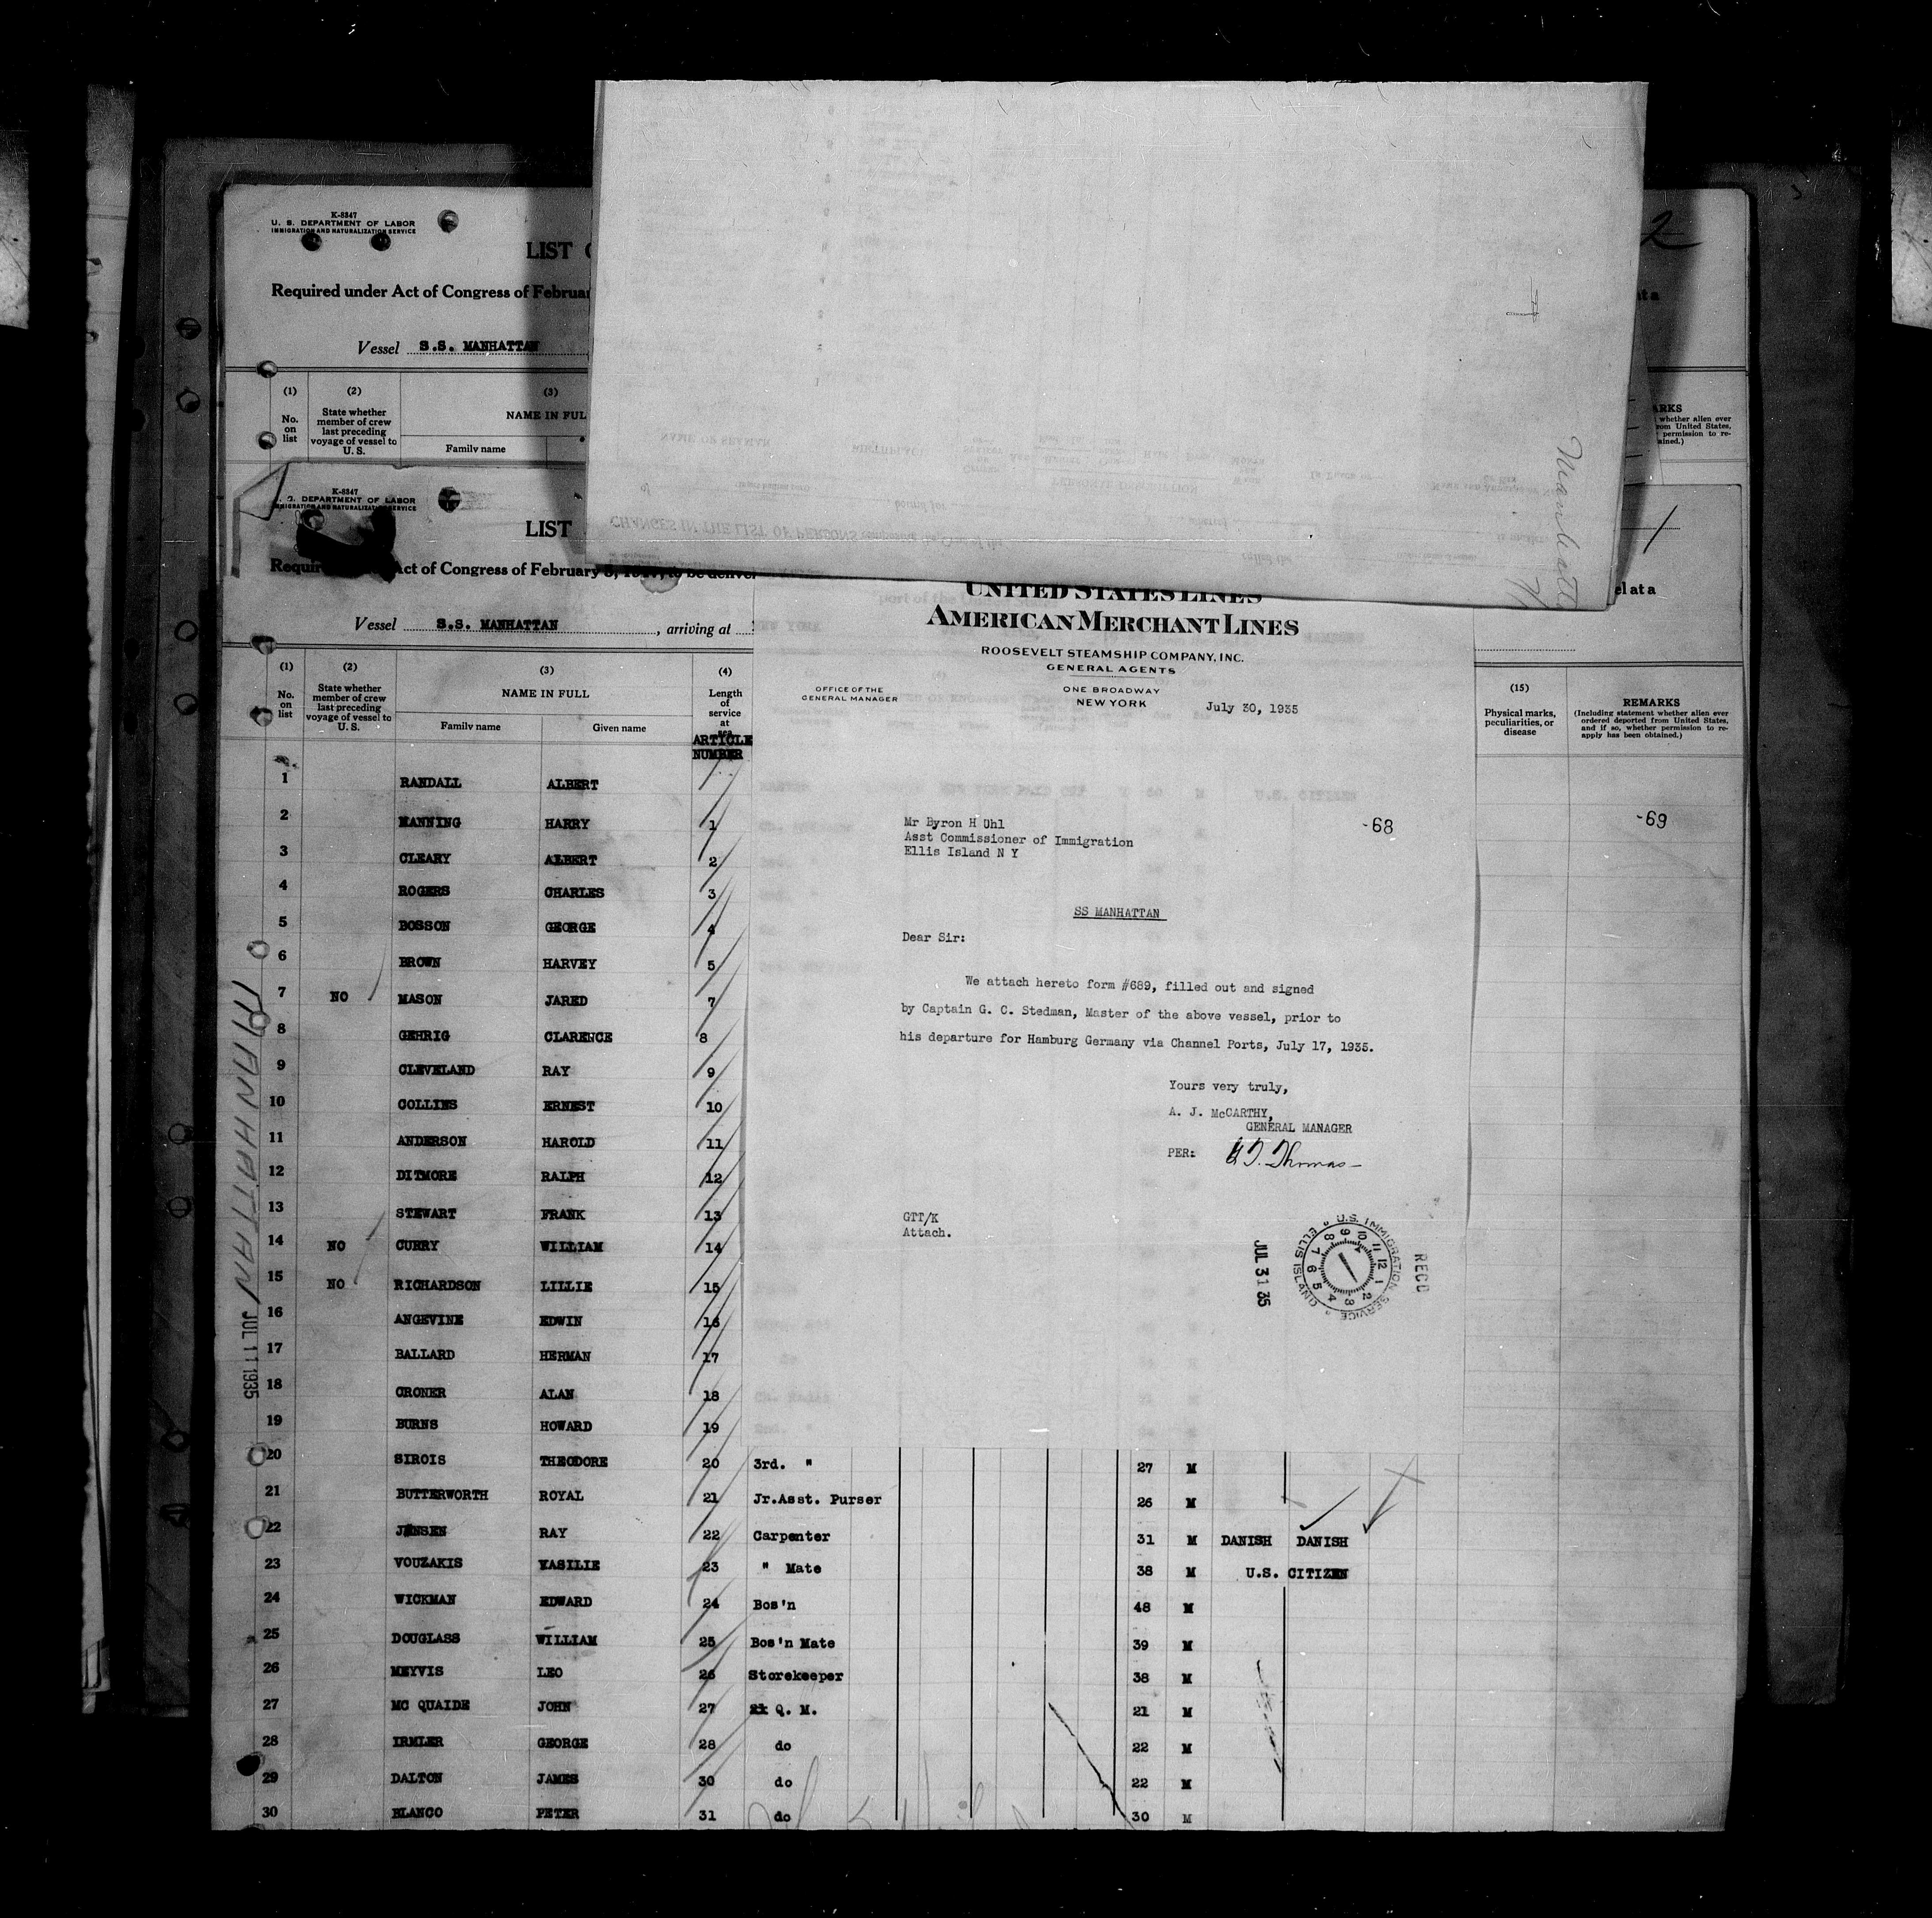 K-8347
U. S. DEPARTMENT OF LABOR
IMMIGRATION AND NATURALIZATION SERVICE
LIST
Required under Act of Congress of Februar
Vessel S.S. MANHATTAN
(1) (2) (3)
No. on list
State whether member of crew last preceding voyage of vessel to U. S.
NAME IN FUL
Family name
2
at a
ARKS
whether alien ever
rom United States,
permission to re-
ained.)
Manhatt
CHANGES IN THE LIST OF PERSONS
NAME OF SEAMAN
BIRTHPLACE
PERSONAL DESCRIPTION
K-8347
DEPARTMENT OF LABOR
IMMIGRATION AND NATURALIZATION SERVICE
LIST
Requir Act of Congress of February 5, 1917, to be deliver
el at a
Vessel S.S. MANHATTAN, arriving at
(1) (2) (3) (4) (15)
No. on list
State whether member of crew last preceding voyage of vessel to U. S.
NAME IN FULL
Family name Given name
Length of service at sea
ARTICLE NUMBER
Physical marks, peculiarities, or disease
REMARKS
(Including statement whether alien ever ordered deported from United States, and if so, whether permission to re-apply has been obtained.)
-69
1 RANDALL ALBERT
2 MANNING HARRY 1
3 CLEARY ALBERT 2
4 ROGERS CHARLES 3
5 BOSSON GEORGE 4
6 BROWN HARVEY 5
7 NO MASON JARED 7
8 GEHRIG CLARENCE 8
9 CLEVELAND RAY 9
10 COLLINS ERNEST 10
11 ANDERSON HAROLD 11
12 DITMORE RALPH 12
13 STEWART FRANK 13
14 NO CURRY WILLIAM 14
15 NO RICHARDSON LILLIE 15
16 ANGEVINE EDWIN 16
17 BALLARD HERMAN 17
18 CRONER ALAN 18
19 BURNS HOWARD 19
20 SIROIS THEODORE 20 3rd. " 27 M
21 BUTTERWORTH ROYAL 21 Jr.Asst. Purser 26 M
22 JENSEN RAY 22 Carpenter 31 M DANISH DANISH
23 VOUZAKIS VASILIE 23 " Mate 38 M U.S. CITIZEN
24 WICKMAN EDWARD 24 Bos'n 48 M
25 DOUGLASS WILLIAM 25 Bos'n Mate 39 M
26 MEYVIS LEO 26 Storekeeper 38 M
27 MC QUAIDE JOHN 27 Q. M. 21 M
28 IRMLER GEORGE 28 do 22 M
29 DALTON JAMES 30 do 22 M
30 BLANCO PETER 31 do 30 M
MANHATTAN JUL 11 1935
UNITED STATES LINES
AMERICAN MERCHANT LINES
ROOSEVELT STEAMSHIP COMPANY, INC.
GENERAL AGENTS
OFFICE OF THE
GENERAL MANAGER
ONE BROADWAY
NEW YORK
July 30, 1935
Mr Byron H Uhl
Asst Commissioner of Immigration
Ellis Island N Y
-68
SS MANHATTAN
Dear Sir:
We attach hereto form #689, filled out and signed
by Captain G. C. Stedman, Master of the above vessel, prior to
his departure for Hamburg Germany via Channel Ports, July 17, 1935.
Yours very truly,
A. J. McCARTHY,
GENERAL MANAGER
PER: G.T. Thomas
GTT/K
Attach.
JUL 31 35
U.S. IMMIGRATION SERVICE
ELLIS ISLAND
1 2 3 4 5 6 7 8 9 10 11 12
RECD